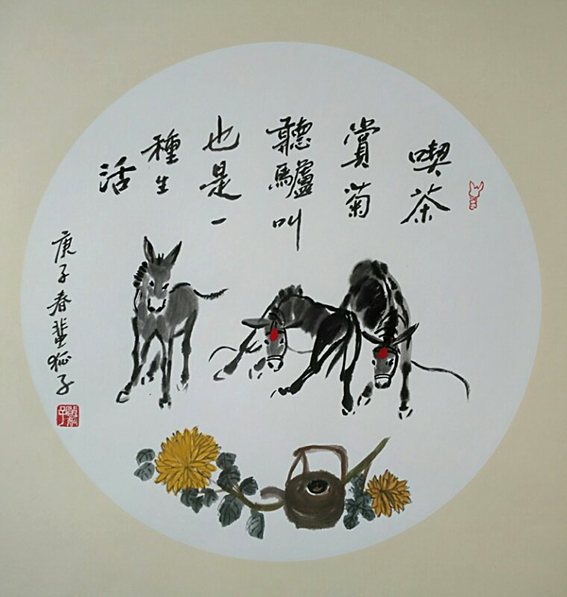 喫茶
賞菊
聽驢叫
也是一
種生
活
庚子春蜚狐子